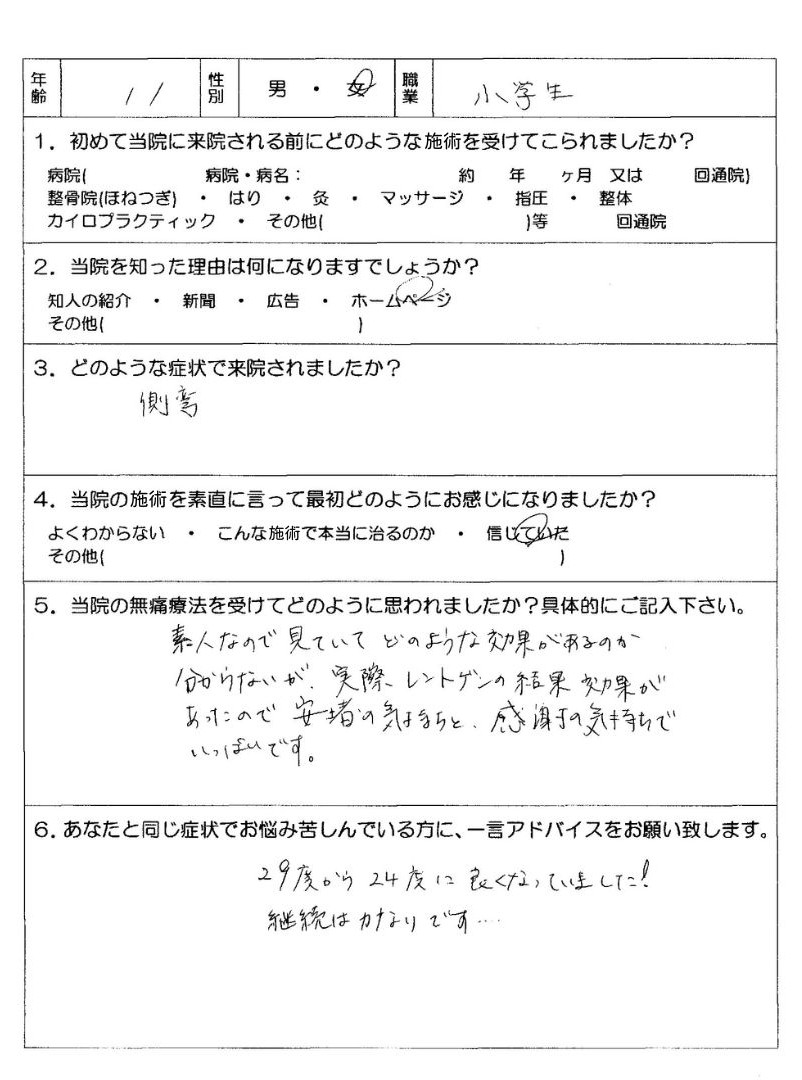 年齢 11 性別 男 ・ 女 職業 小学生
1．初めて当院に来院される前にどのような施術を受けてこられましたか？
病院( 病院・病名： 約 年 ヶ月 又は 回通院)
整骨院(ほねつぎ) ・ はり ・ 灸 ・ マッサージ ・ 指圧 ・ 整体
カイロプラクティック ・ その他( )等 回通院
2．当院を知った理由は何になりますでしょうか？
知人の紹介 ・ 新聞 ・ 広告 ・ ホームページ
その他( )
3．どのような症状で来院されましたか？
側弯
4．当院の施術を素直に言って最初どのようにお感じになりましたか？
よくわからない ・ こんな施術で本当に治るのか ・ 信じていた
その他( )
5．当院の無痛療法を受けてどのように思われましたか？具体的にご記入下さい。
素人なので見ていてどのような効果があるのか
分からないが、実際、レントゲンの結果効果が
あったので安堵の気持ちと、感謝の気持ちで
いっぱいです。
6．あなたと同じ症状でお悩み苦しんでいる方に、一言アドバイスをお願い致します。
29度から24度に良くなっていました！
継続は力なりです…